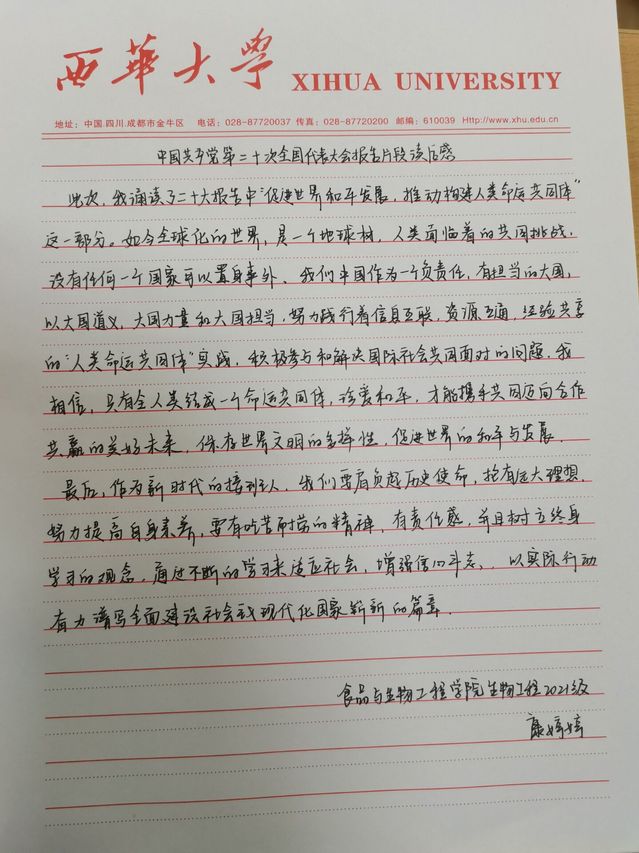 西華大学 XIHUA UNIVERSITY
地址：中国.四川.成都市金牛区 电话：028-87720037 传真：028-87720200 邮编：610039 Http://www.xhu.edu.cn
中国共产党第二十次全国代表大会报告片段读后感
此次，我诵读了二十大报告中“促进世界和平发展，推动构建人类命运共同体”
这一部分。如今全球化的世界，是一个地球村，人类面临着的共同挑战，
没有任何一个国家可以置身事外、我们中国作为一个负责任，有担当的大国，
以大国道义，大国力量和大国担当，努力践行着信息互联，资源互通，经验共享
的“人类命运共同体”实践，积极参与和解决国际社会共同面对的问题，我
相信，只有全人类结成一个命运共同体，珍爱和平，才能携手共同迈向合作
共赢的美好未来，保存世界文明的多样性，促进世界的和平与发展．
最后，作为新时代的接班人，我们要肩负起历史使命，抱有远大理想．
努力提高自身素养，要有吃苦耐劳的精神，有责任感，并且树立终身
学习的观念，通过不断的学习来适应社会，增强信心斗志、以实际行动
奋力谱写全面建设社会主义现代化国家崭新的篇章．
食品与生物工程学院生物工程2021级
康婷婷